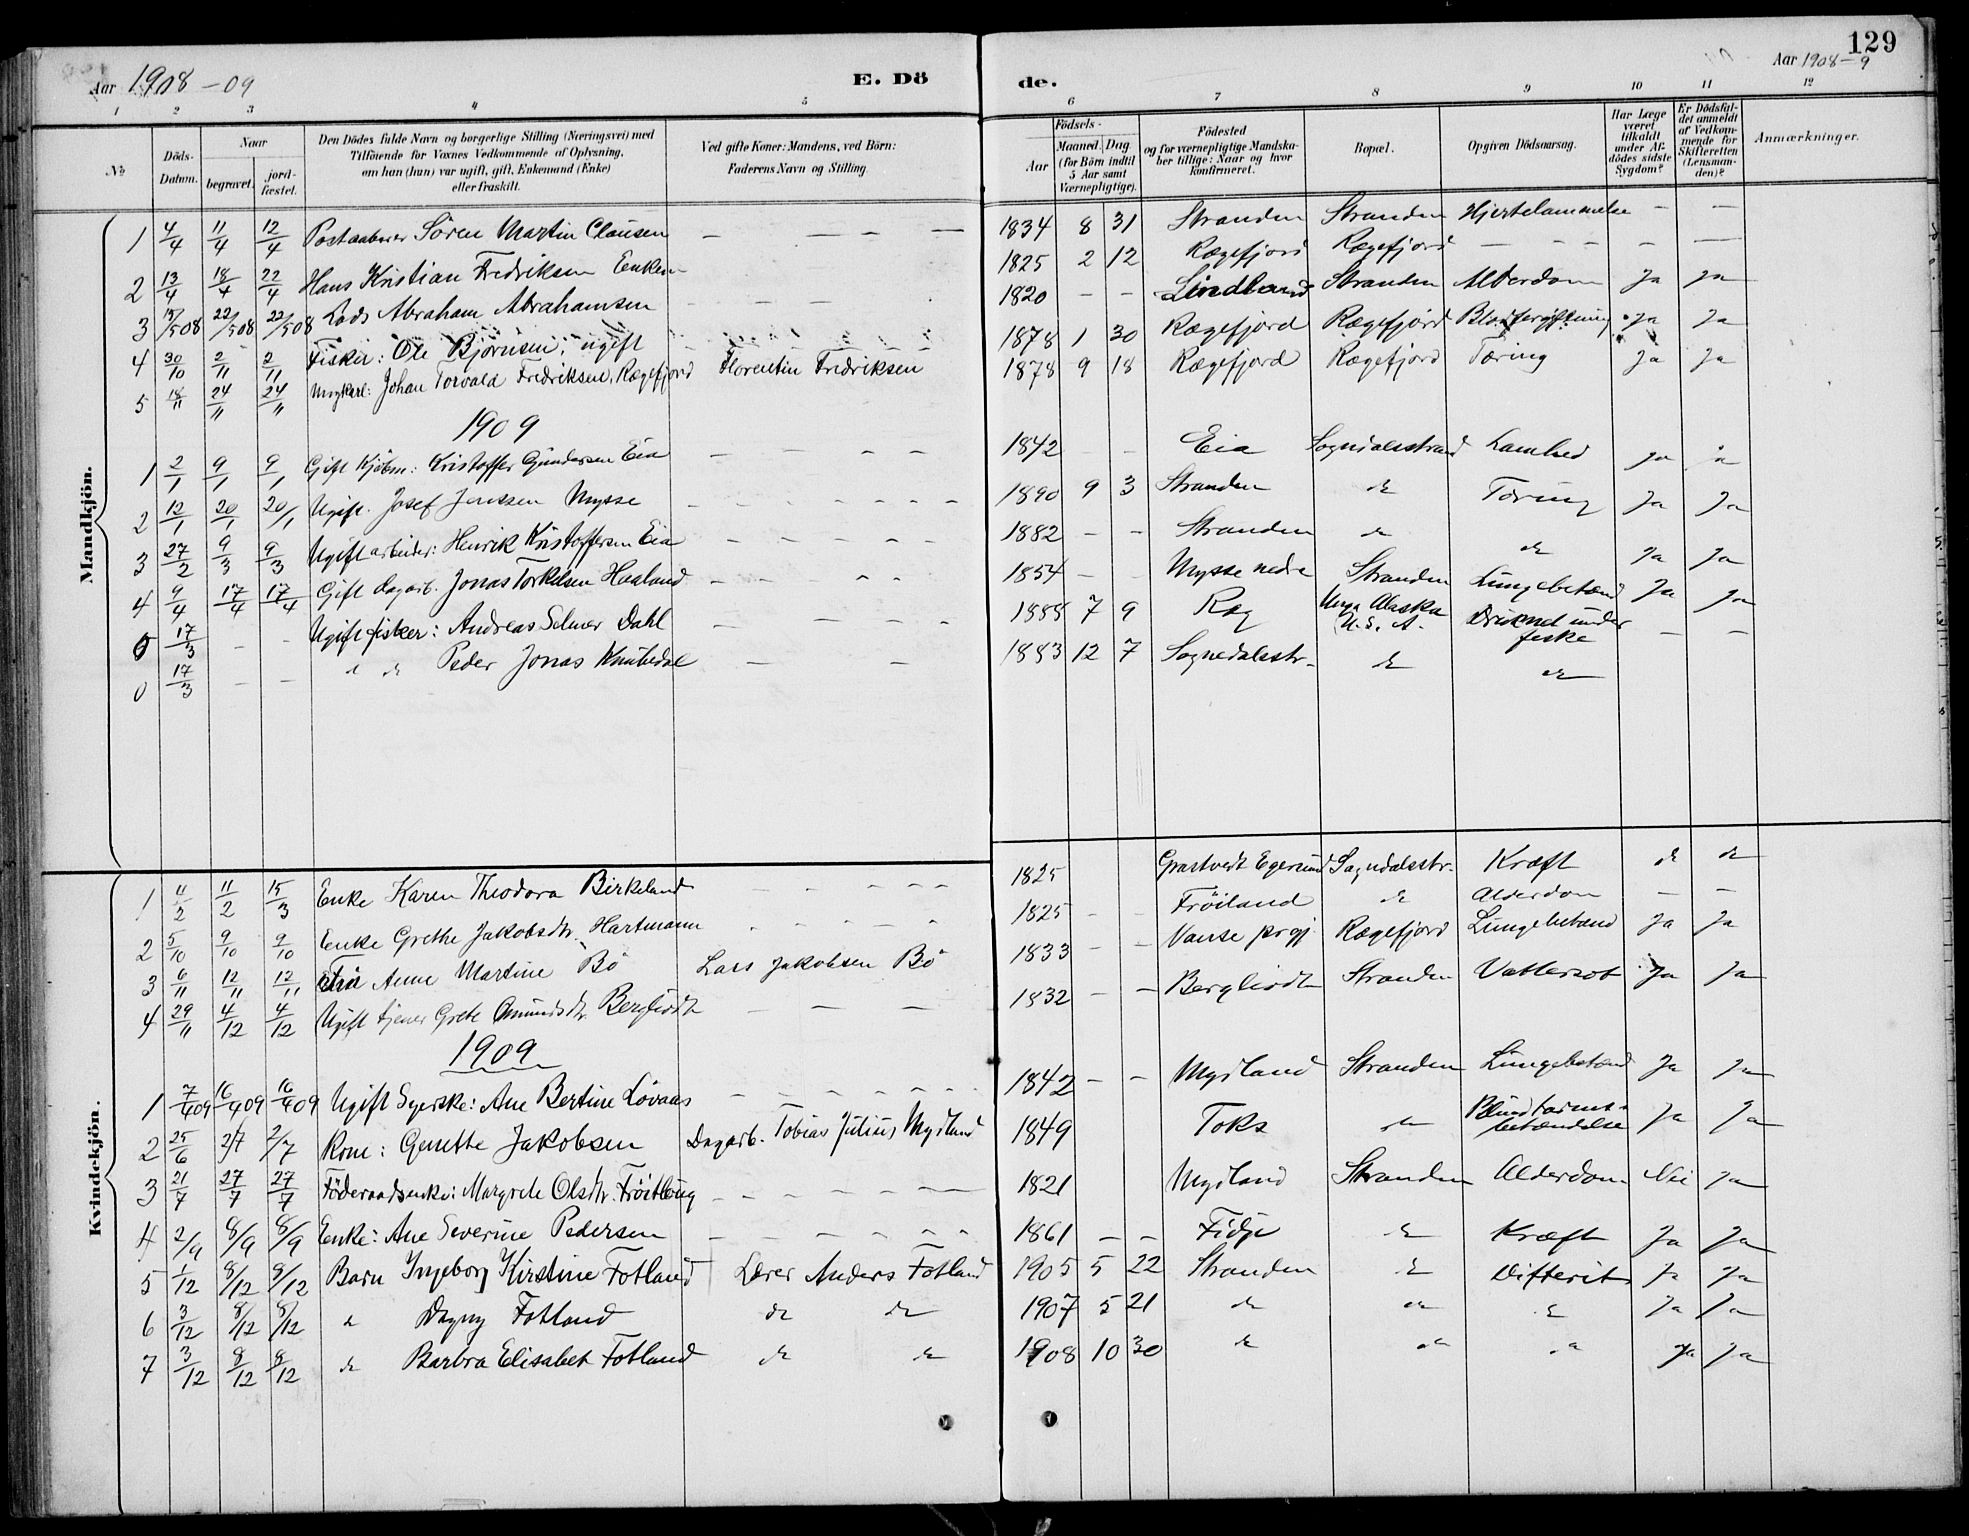 129
Aar 1908-09 E. Dö de. Aar 1908-9
1 2 3 4 5 6 7 8 9 10 11 12
No. Döds-Datum. Naar begravet. jord-fæstet. Den Dödes fulde Navn og borgerlige Stilling (Næringsvei) med Tilföiende for Voxnes Vedkommende af Oplysning, om han (hun) var ugift, gift, Enkemand (Enke) eller fraskilt. Ved gifte Koner: Mandens, ved Börn: Faderens Navn og Stilling. Födsels- Aar Maaned. Dag. (for Börn indtil 5 Aar samt Værnepligtige). Födested og for værnepligtige Mandskaber tillige: Naar og hvor konfirmeret. Bopæl. Opgiven Dödsaarsag. Har Læge været tilkaldt under Afdödes sidste Sygdom? Er Dödsfaldet anmeldt af Vedkommende for Skifteretten (Lensmanden)? Anmærkninger.
Mandkjön.
1 4/4 11/4 12/4 Postaabner Sören Martin Clausen — — — — 1834 8 31 Stranden Stranden Hjertelammelse — —
2 13/4 18/4 22/4 Hans Kristian Fredriksen Enkem 1825 2 12 Rægefjord Rægefjord — — — — —
3 15/508 22/508 22/508 Lods Abraham Abrahamsen — — — 1820 — — Lindland Stranden Alderdom Ja Ja
4 30/10 2/11 2/11 Fisker: Ole Björnsen, ugift 1878 1 30 Rægefjord Rægefjord Blodforgiftning Ja Ja
5 18/11 24/11 24/11 Ungkarl: Johan Torvald Fredriksen, Rægefjord Florentin Fredriksen 1878 9 18 Rægefjord Rægefjord Tæring Ja Ja
1909
1 2/1 9/1 9/1 Gift Kjöbm: Kristoffer Gundersen Eia — — — — — 1842 — Eia Sogndalsstrand Lamhed ja ja
2 12/1 20/1 20/1 Ugift. Josef Jenssen Mysse — — — — — 1890 9 3 Stranden do Tæring Ja Ja
3 27/2 9/3 9/3 Ugift arbeider: Henrik Kristoffersen Eia — — — — — 1882 — — Stranden do do Ja Ja
4 9/4 17/4 17/4 Gift dagarb. Jonas Torkelsen Haaland — — — — 1854 — — Mysse nedre Stranden Lungebetænd Ja Ja
0 17/3 — — Ugift fisker: Andreas Selmer Dahl — — — — — 1888 7 9 Ræg Unga Alaska U.S.A. Druknet under fiske — —
0 17/3 — — do do Peder Jonas Knubedal — — 1883 12 7 Sognedalsstr. do do
Kvindekjön.
1 11/2 11/2 15/3 Enke Karen Theodora Birkeland — — — — — 1825 Grastvedt Egersund Sogndalsstr. Kræft do do
2 5/10 9/10 9/10 Enke Grethe Jakobsdtr. Hartmann — — — — 1825 — — Fröiland do Alderdom — —
3 6/11 12/11 12/11 Anne Martine Bö Lars Jakobsen Bö 1833 — — Vanse prgj Rægefjord Lungebetænd Ja Ja
4 29/11 4/12 4/12 Ugift tjener Grete Omundsdtr. Bergliodt — — — 1832 — — Bergliodt Stranden Vattersot Ja Ja
1909
1 7/409 16/409 16/409 Ugift Syerske: Ane Bertine Lövaas — — — — — — 1842 — — Mydland Stranden Lungebetænd Ja Ja
2 25/6 2/7 2/7 Kone: Genette Jakobsen Dagarb. Tobias Julius Mydland 1849 Toks do Blindtarmsbetændelse Ja Ja
3 21/7 27/7 27/7 Föderaadsenke: Margrete Olsdtr. Fröitlöug — — — — — — 1821 Mydland Stranden Alderdom Nei Ja
4 2/9 8/9 8/9 Enke: Ane Severine Pedersen — — — — — 1861 — — Fidje do Kræft Ja Ja
5 1/12 8/12 8/12 Barn Ingeborg Kirstine Fotland Lærer Anders Fotland 1905 5 22 Stranden do Difterit Ja Ja
6 3/12 8/12 8/12 do Dagny Fotland do do 1907 5 21 do do do Ja Ja
7 3/12 8/12 8/12 do Barbra Elisabet Fotland do do 1908 10 30 do do do Ja Ja